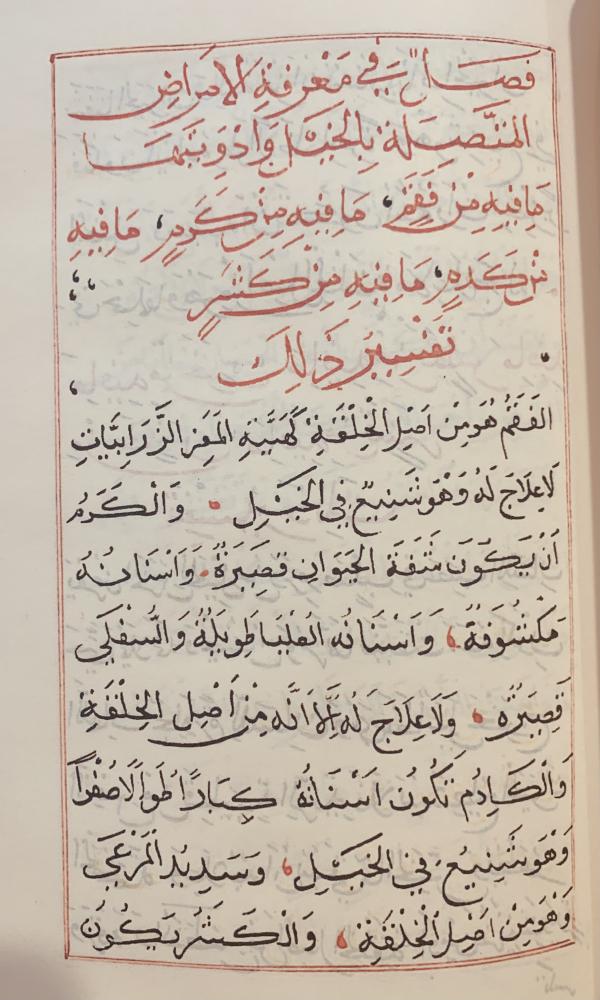 فصل في مَعْرفةِ الامراضِ
المتَّصِلَة بِالخيْل وَادْوِيَتِهَا
مَافيْهِ مِنْ فَقَمٍ، مَافيْهِ مِنْ كَرَمٍ، مَافيْهِ
مْن كَدَمٍ، مَافيْهِ مِنْ كَشَرٍ
تَفسِيْرُ ذَلِكَ
الفَقَمُ هُوَ مِنْ اَصْلِ الْخِلْقَةِ كَهَيْئَةِ المَعَزِ الزَّرَابِيَّاتِ
لَاعِلَاجَ لَهُ وَهْوَ شَنِيْعٌ فِي الخَيْلِ • وَالْكَرَمُ
اَنْ يَكُوْنَ شَفَةَ الحَيَوَانِ قَصِيْرَةٌ • وَاَسْنَانُهُ
مَكْشُوْفَةٌ، وَاَسْنَانُه العُلْيَا طَوِيْلَةٌ وَالسُّفْلَى
قَصِيْرَةٌ • وَلَاعِلَاجَ لَهُ اِلَّا اَنَّه مِنْ اَصْلِ الخِلْقَةِ
وَالْكَادِمُ تَكُوْنُ اَسْنَانُهُ كِبَارًا طُوَالًا صُفْرًا
وَهْوَ شَنِيْعٌ فِي الخَيْلِ، وَسَدِيْدُ المَرْعَى
وَهْوَ مِنْ اَصْلِ الْخِلْقَةِ، وَالْكَشَرُ يَكُوْنُ